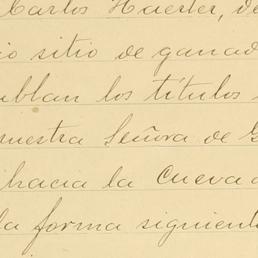 Carlos Haerter, de
io sitio de ganad
ublan los títulos
nuestra Señora de G
hacia la Cueva
la forma siguient